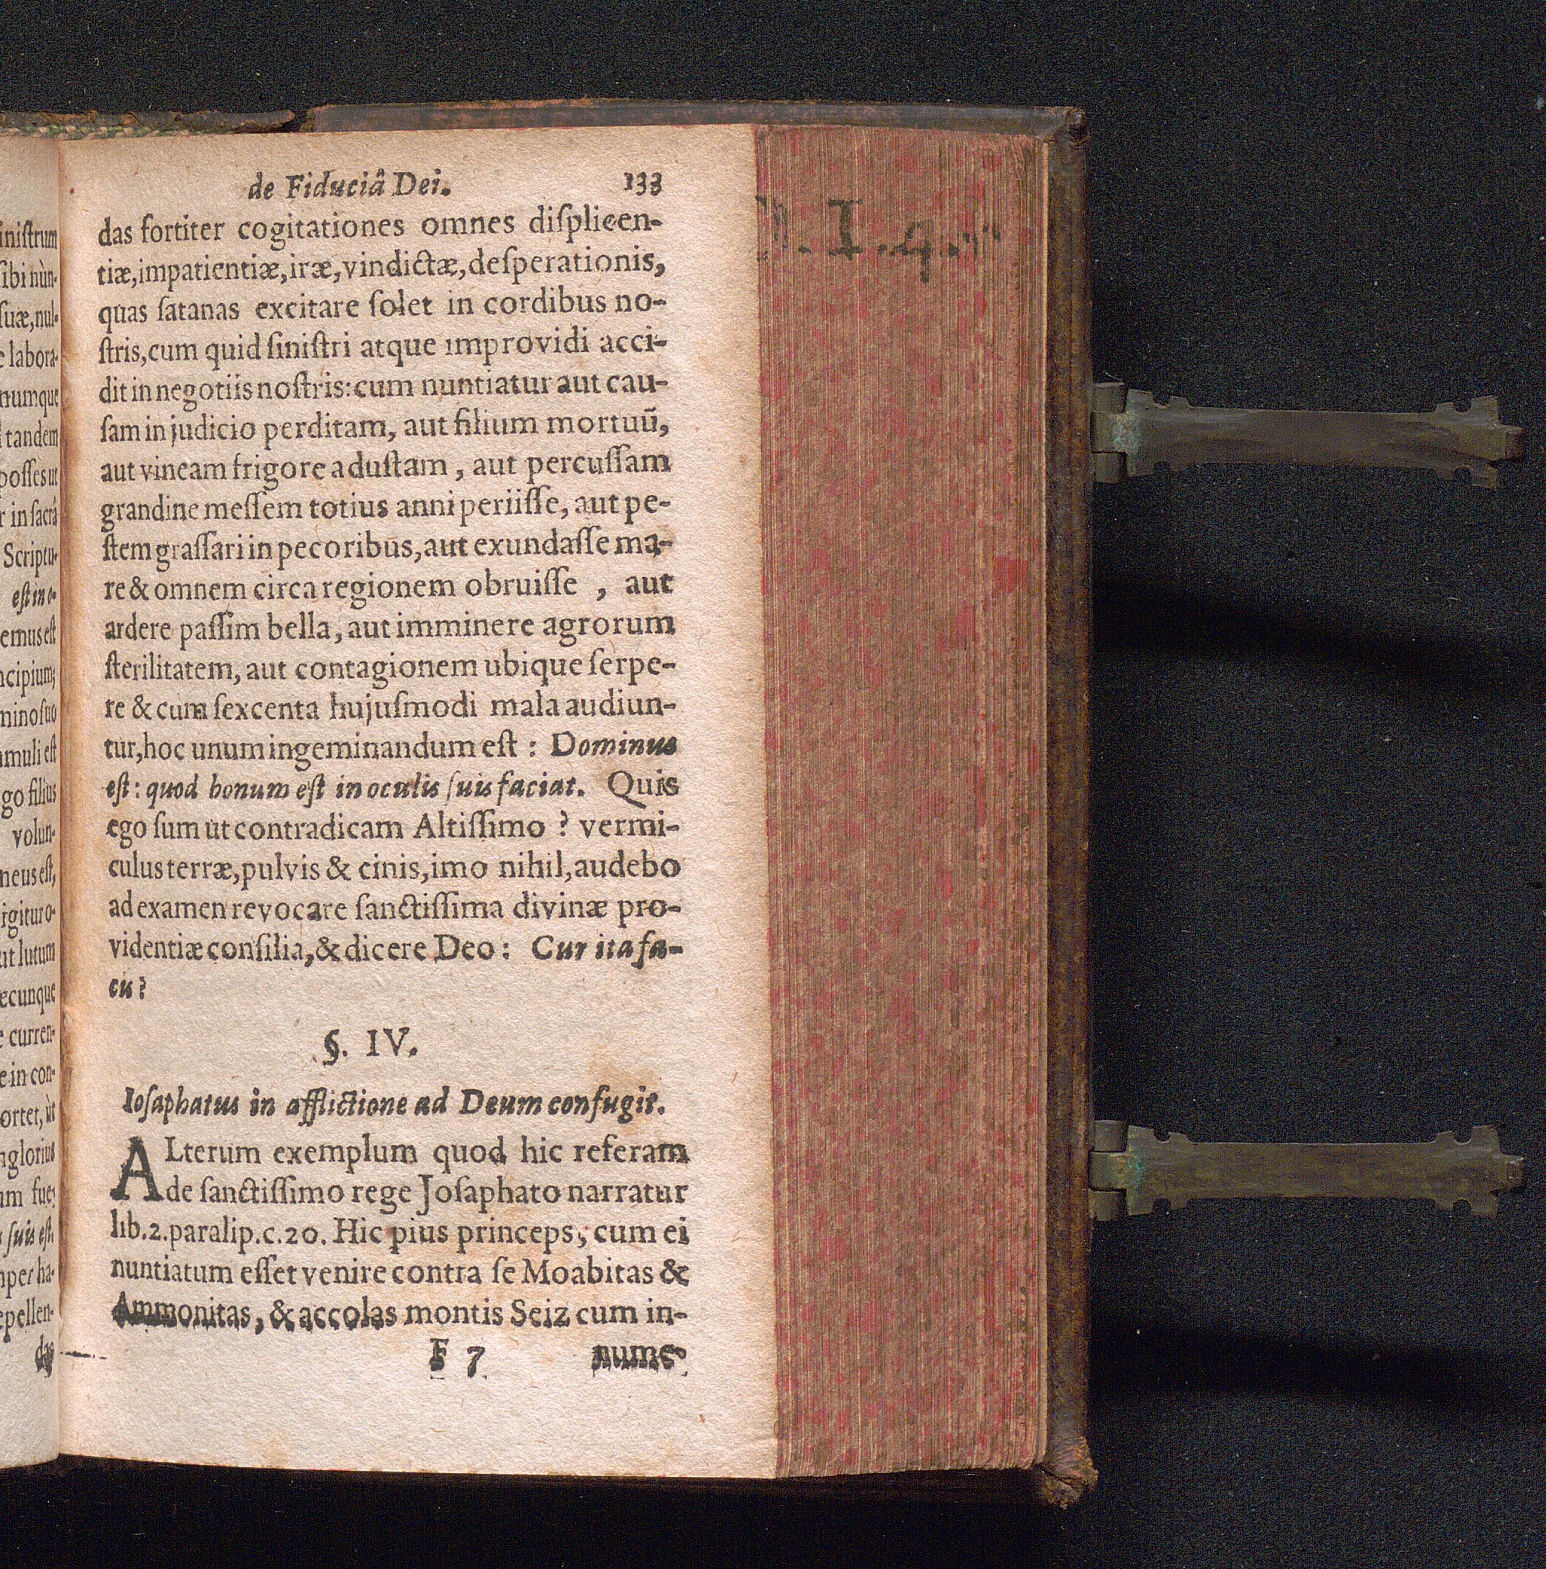 de Fiduciâ Dei. 133
das fortiter cogitationes omnes diſplicen-
tiæ,impatientiæ,iræ,vindictæ,deſperationis,
quas ſatanas excitare ſolet in cordibus no-
ſtris,cum quid ſiniſtri atque improvidi acci-
dit in negotiis noſtris:cum nuntiatur aut cau-
ſam in judicio perditam, aut filium mortuū,
aut vineam frigore aduſtam, aut percuſſam
grandine meſſem totius anni periiſſe, aut pe-
ſtem graſſari in pecoribus,aut exundaſſe ma-
re & omnem circa regionem obruiſſe, aut
ardere paſſim bella, aut imminere agrorum
ſterilitatem, aut contagionem ubique ſerpe-
re & cum ſexcenta hujuſmodi mala audiun-
tur,hoc unum ingeminandum eſt: Dominus
eſt: quod bonum eſt in oculis ſuis faciat. Quis
ego ſum ut contradicam Altiſſimo? vermi-
culus terræ,pulvis & cinis,imo nihil,audebo
ad examen revocare ſanctiſſima divinæ pro-
videntiæ conſilia,& dicere Deo: Cur ita fa-
cis?
§. IV.
Ioſaphatus in afflictione ad Deum confugit.
ALterum exemplum quod hic referam
de ſanctiſſimo rege Joſaphato narratur
lib.2.paralip.c.20. Hic pius princeps, cum ei
nuntiatum eſſet venire contra ſe Moabitas &
Ammonitas, & accolas montis Seiz cum in-
F 7 nume-
iniſtrum
ſibi nùn-
ſuæ,nul-
labora-
numque
tandem
poſſes ut
in ſacrâ
Scriptu-
eſt in
emus eſt
ncipium;
mino ſuo
muli eſt
go filius
volun-
neus eſt,
igitur o-
ut lutum
ecunque
curren-
in con-
ortet, ùt
ſuis eſt,
per ha-
epellen-
das